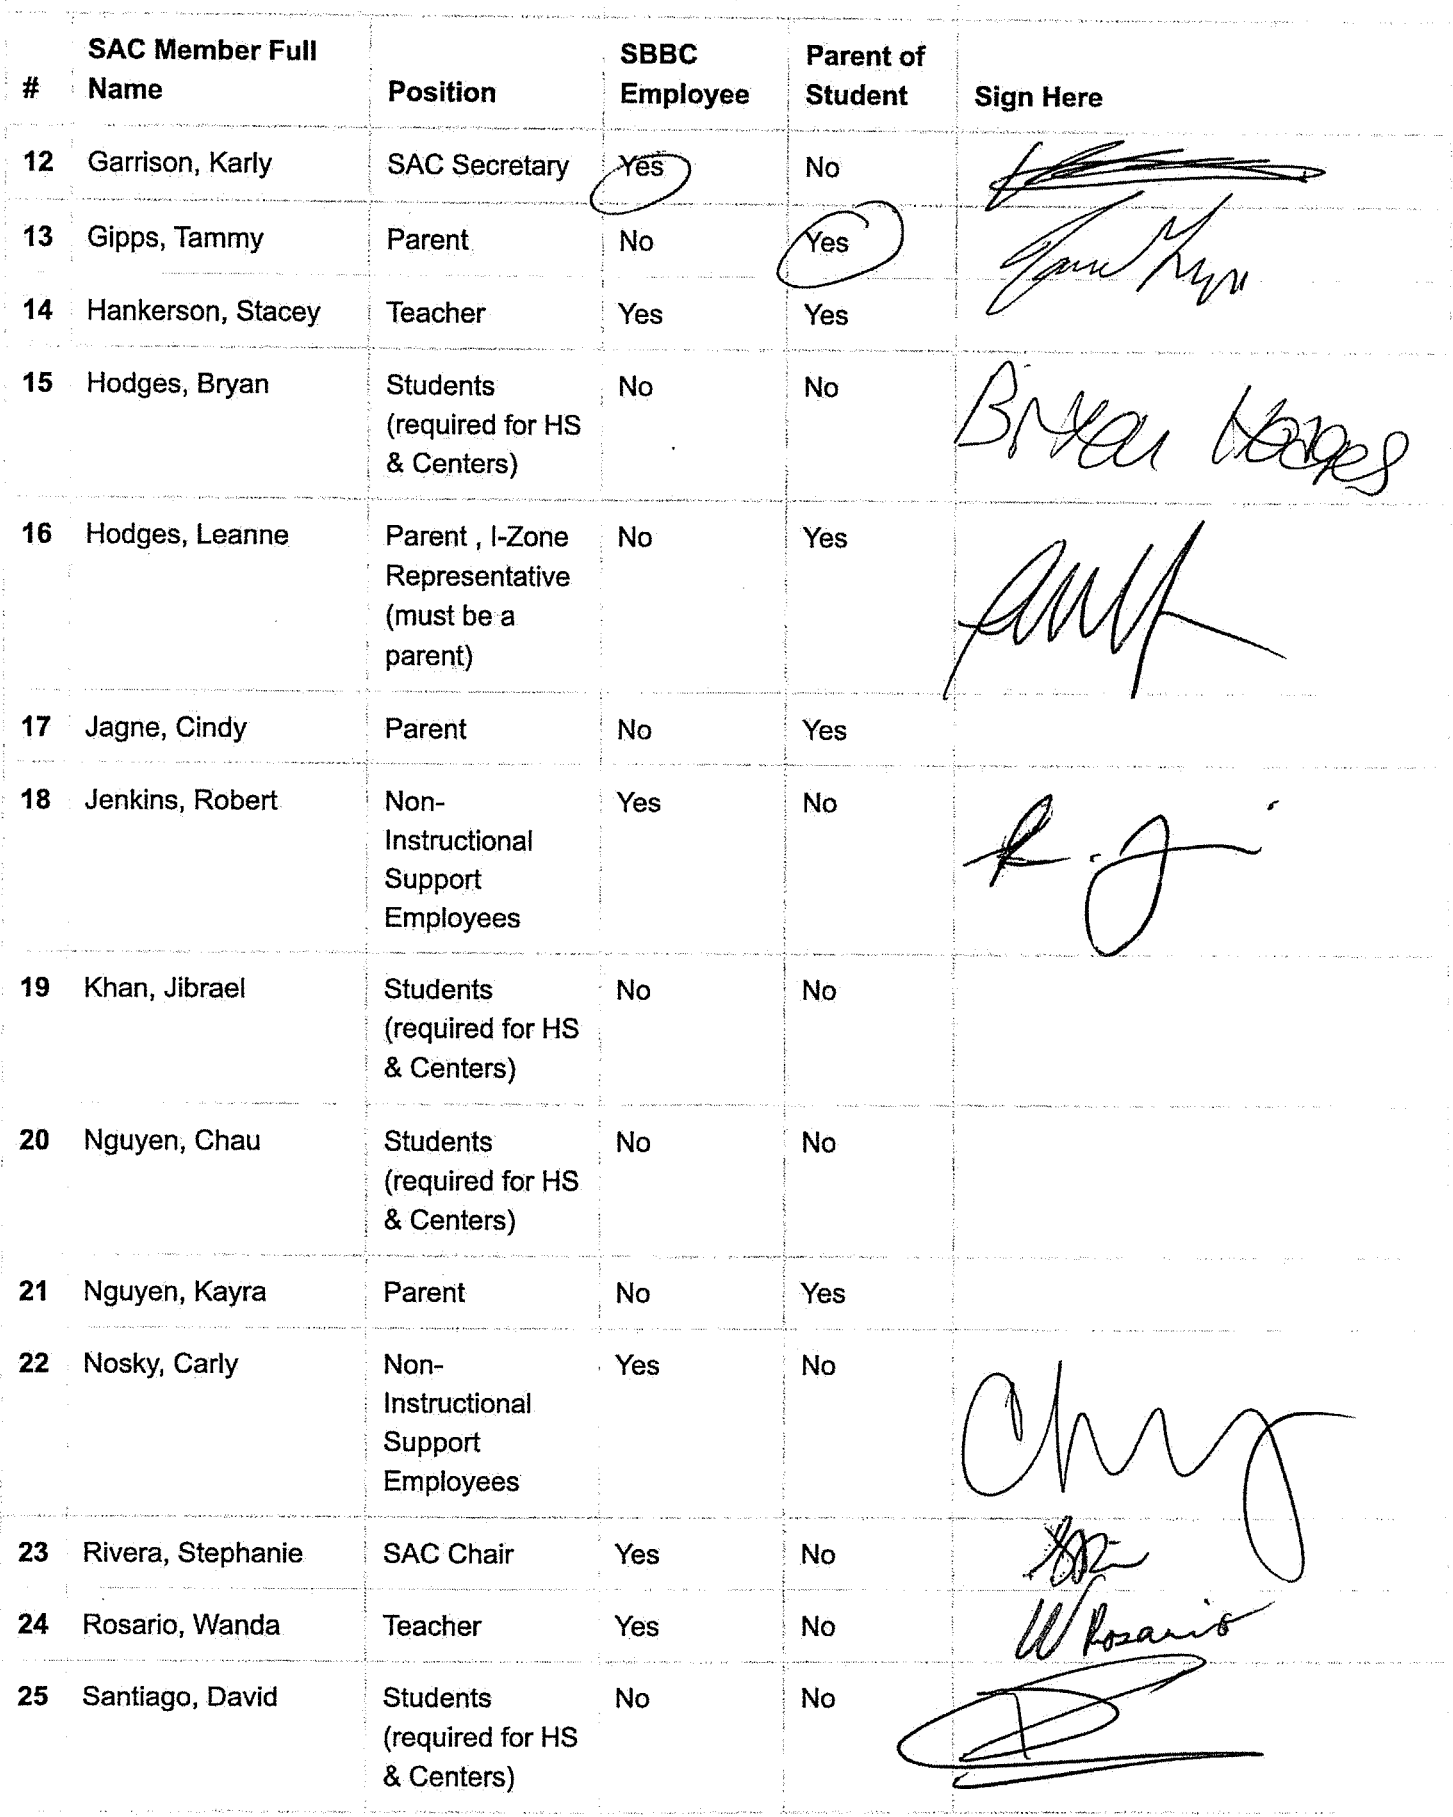 # SAC Member Full Name Position SBBC Employee Parent of Student Sign Here
12 Garrison, Karly SAC Secretary Yes No
13 Gipps, Tammy Parent No Yes
14 Hankerson, Stacey Teacher Yes Yes
15 Hodges, Bryan Students No No Bryan Hodges
(required for HS
& Centers)
16 Hodges, Leanne Parent , I-Zone No Yes
Representative
(must be a
parent)
17 Jagne, Cindy Parent No Yes
18 Jenkins, Robert Non- Yes No
Instructional
Support
Employees
19 Khan, Jibrael Students No No
(required for HS
& Centers)
20 Nguyen, Chau Students No No
(required for HS
& Centers)
21 Nguyen, Kayra Parent No Yes
22 Nosky, Carly Non- Yes No
Instructional
Support
Employees
23 Rivera, Stephanie SAC Chair Yes No
24 Rosario, Wanda Teacher Yes No W Rosario
25 Santiago, David Students No No
(required for HS
& Centers)